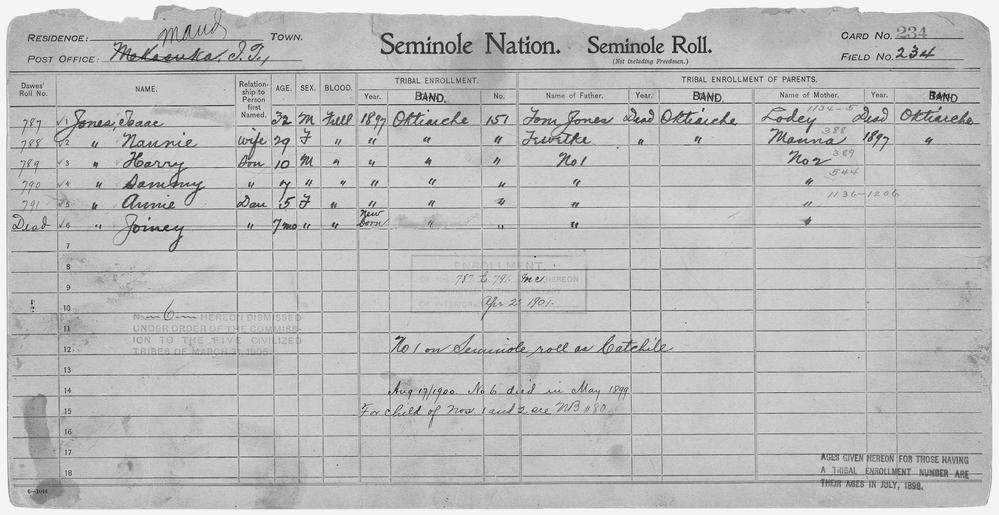 RESIDENCE: Maud TOWN.
POST OFFICE: Mekasuka, I.T.,
Seminole Nation. Seminole Roll.
(Not including Freedmen.)
CARD No. 234
FIELD No. 234
Dawes' Roll No. NAME. Relationship to Person first Named. AGE. SEX. BLOOD. TRIBAL ENROLLMENT. TRIBAL ENROLLMENT OF PARENTS.
Year. BAND. No. Name of Father. Year. BAND. Name of Mother. Year. BAND.
787 1 Jones, Isaac 32 M Full 1897 Oktiarche 151 Tom Jones Dead Oktiarche Lodey 1134-5 Dead Oktiarche
788 2 " Nannie Wife 29 F " " " " " " Manna 388 1897 "
789 3 " Harry Son 10 M " " " " No 1 No 2 389
790 4 " Sammy " 7 " " " " " " " 544
791 5 " Annie Dau 5 F " " " " " " 1136-1206
Dead 6 " Joiney " 7 mo " " New Born " " " "
7
8
ENROLLMENT
787 to 791 Inc HEREON
9
Apr 2 1901
10
No 6 HEREON DISMISSED
UNDER ORDER OF THE COMMISSION TO THE FIVE CIVILIZED
TRIBES OF MARCH 31, 1905
11
12 No 1 on Seminole roll as Catchile
13
14 Aug 17/1900 No 6 died in May 1899
15 For child of Nos. 1 and 2 see NB #80
16
17
18
AGES GIVEN HEREON FOR THOSE HAVING
A TRIBAL ENROLLMENT NUMBER ARE
THEIR AGES IN JULY, 1898.